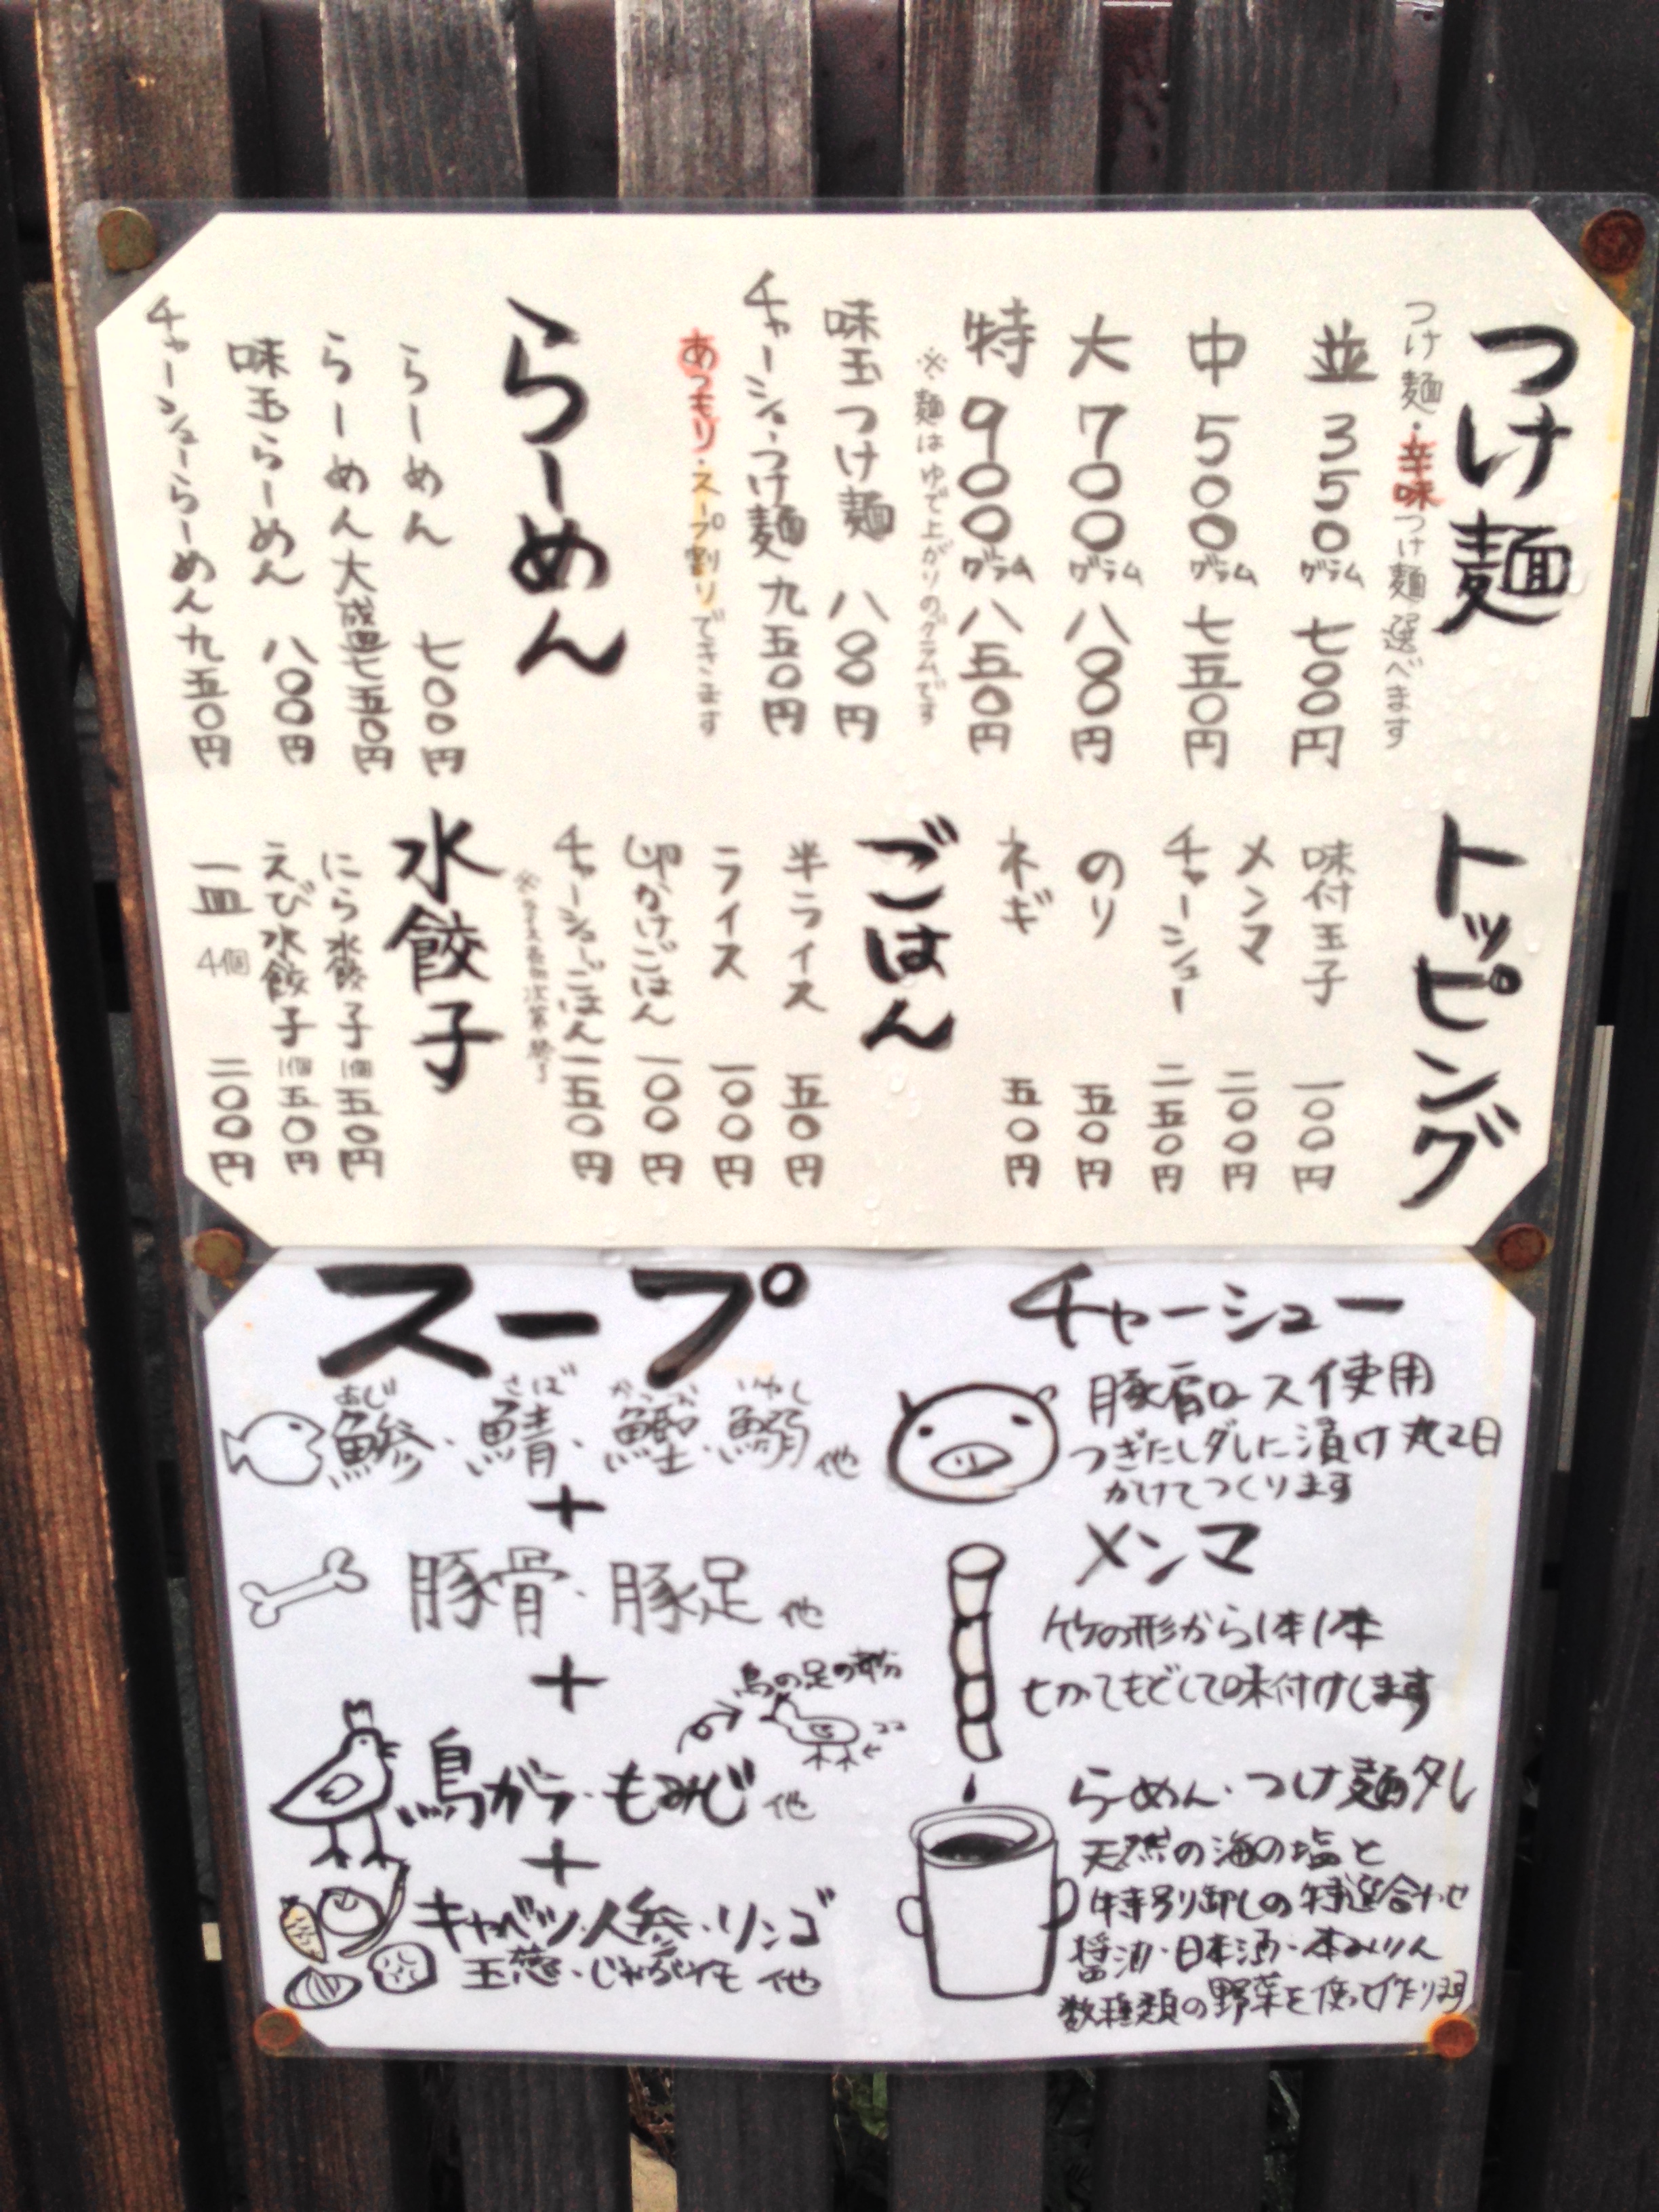 つけ麺
つけ麺・辛味つけ麺選べます
並 350グラム 七〇〇円
中 500グラム 七五〇円
大 700グラム 八〇〇円
特 900グラム 八五〇円
※麺はゆで上がりのグラムです
味玉つけ麺 八〇〇円
チャーシューつけ麺 九五〇円
あつもり・スープ割りできます
らーめん
らーめん 七〇〇円
らーめん大盛 七五〇円
味玉らーめん 八〇〇円
チャーシューらーめん 九五〇円
トッピング
味付玉子 一〇〇円
メンマ 二〇〇円
チャーシュー 二五〇円
のり 五〇円
ネギ 五〇円
ごはん
半ライス 五〇円
ライス 一〇〇円
卵かけごはん 一〇〇円
チャーシューごはん 一五〇円
次第終了
水餃子
にら水餃子 1個 五〇円
えび水餃子 1個 五〇円
一皿 4個 二〇〇円
スープ
あじ さば いわし
鯵・鯖・鰹・鰯 他
+
豚骨・豚足 他
+
鳥の足の部分
ココ
鳥ガラ・もみじ 他
+
キャベツ・人参・リンゴ
玉葱・じゃがいも 他
チャーシュー
豚肩ロース使用
つぎたしダレに漬け丸2日
かけてつくります
メンマ
竹の形から1本1本
てもどして味付けします
らーめん・つけ麺タレ
天然の海の塩と
特別卸しの特選合わせ
醤油・日本酒・本みりん
数種類の野菜を使って作り